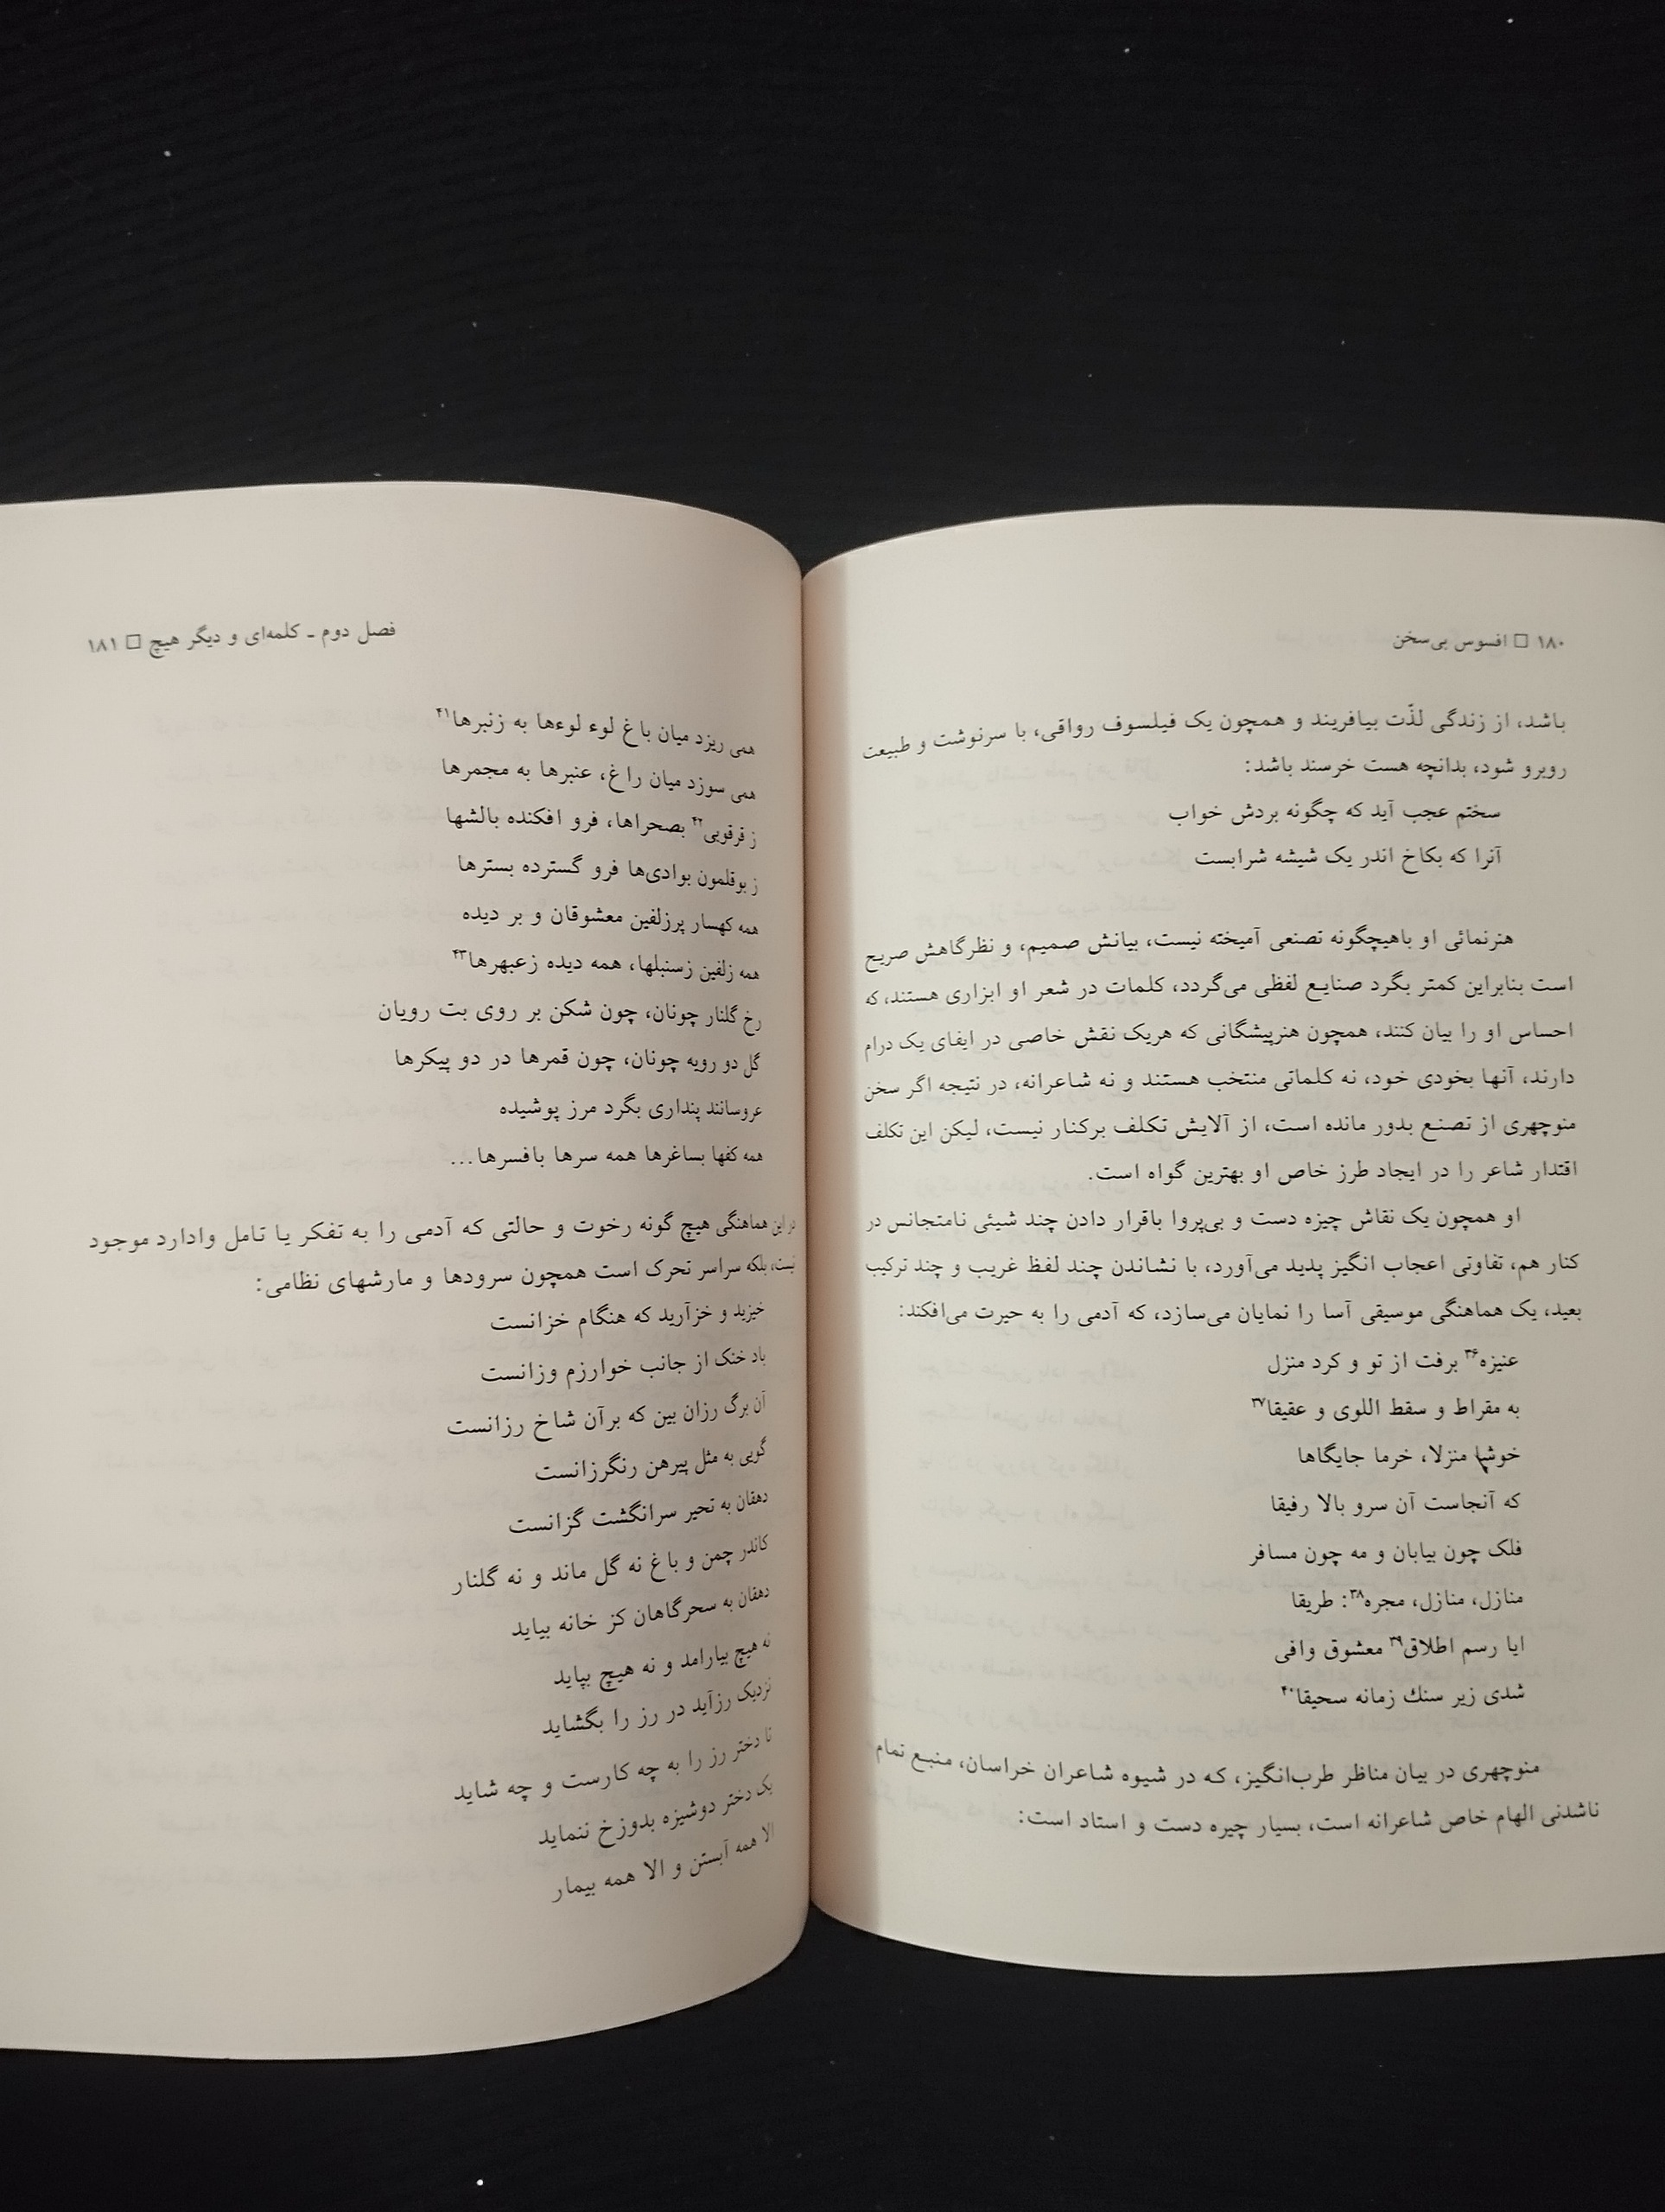 ۱۸۰ □ افسوس بی‌سخن
باشد، از زندگی لذّت بیافریند و همچون یک فیلسوف رواقی، با سرنوشت و طبیعت
روبرو شود، بدانچه هست خرسند باشد:
سختم عجب آید که چگونه بردش خواب
آنرا که بکاخ اندر یک شیشه شرابست
هنرنمائی او باهیچگونه تصنعی آمیخته نیست، بیانش صمیم، و نظرگاهش صریح
است بنابراین کمتر بگرد صنایع لفظی می‌گردد، کلمات در شعر او ابزاری هستند، که
احساس او را بیان کنند، همچون هنرپیشگانی که هریک نقش خاصی در ایفای یک درام
دارند، آنها بخودی خود، نه کلماتی منتخب هستند و نه شاعرانه، در نتیجه اگر سخن
منوچهری از تصنع بدور مانده است، از آلایش تکلف برکنار نیست، لیکن این تکلف
اقتدار شاعر را در ایجاد طرز خاص او بهترین گواه است.
او همچون یک نقاش چیزه دست و بی‌پروا باقرار دادن چند شیئی نامتجانس در
کنار هم، تفاوتی اعجاب انگیز پدید می‌آورد، با نشاندن چند لفظ غریب و چند ترکیب
بعید، یک هماهنگی موسیقی آسا را نمایان می‌سازد، که آدمی را به حیرت می‌افکند:
عنیزه۳۶ برفت از تو و کرد منزل
به مقراط و سقط اللوی و عقیقا۳۷
خوشا منزلا، خرما جایگاها
که آنجاست آن سرو بالا رفیقا
فلک چون بیابان و مه چون مسافر
منازل، منازل، مجره۳۸: طریقا
ایا رسم اطلاق۳۹ معشوق وافی
شدی زیر سنك زمانه سحیقا۴۰
منوچهری در بیان مناظر طرب‌انگیز، که در شیوه شاعران خراسان، منبع تمام
ناشدنی الهام خاص شاعرانه است، بسیار چیره دست و استاد است:
فصل دوم ـ کلمه‌ای و دیگر هیچ □ ۱۸۱
همی ریزد میان باغ لوء لوءها به زنبرها۴۱
همی سوزد میان راغ، عنبرها به مجمرها
ز قرقوبی۴۲ بصحراها، فرو افکنده بالشها
ز بوقلمون بوادی‌ها فرو گسترده بسترها
همه کهسار پرزلفین معشوقان و بر دیده
همه زلفین زسنبلها، همه دیده زعبهرها۴۳
رخ گلنار چونان، چون شکن بر روی بت رویان
گل دو رویه چونان، چون قمرها در دو پیکرها
عروسانند پنداری بگرد مرز پوشیده
همه کفها بساغرها همه سرها بافسرها...
در این هماهنگی هیچ گونه رخوت و حالتی که آدمی را به تفکر یا تامل وادارد موجود
نیست، بلکه سراسر تحرک است همچون سرودها و مارشهای نظامی:
خیزید و خزآرید که هنگام خزانست
باد خنک از جانب خوارزم وزانست
آن برگ رزان بین که برآن شاخ رزانست
گویی به مثل پیرهن رنگرزانست
دهقان به تحیر سرانگشت گزانست
کاندر چمن و باغ نه گل ماند و نه گلنار
دهقان به سحرگاهان کز خانه بیاید
نه هیچ بیارامد و نه هیچ بپاید
نزدیک رزآید در رز را بگشاید
تا دختر رز را به چه کارست و چه شاید
یک دختر دوشیزه بدوزخ ننماید
الا همه آبستن و الا همه بیمار